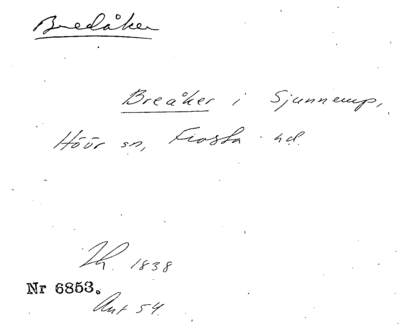 Bredåker
Breåker i Sjunnerup,
Höör sn, Frosta hd.
Lh. 1838
Nr 6853.
Ant 54.